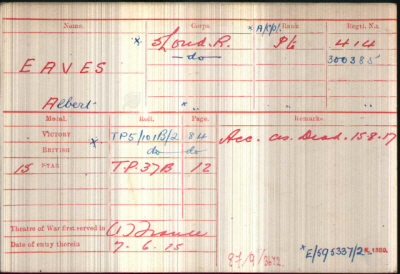 Name. Corps. Rank. Regtl. No.
* 5 Lond. R. *A/Cpl. Pte 414
EAVES —do— 300385
Albert * "
Medal. Roll. Page. Remarks.
VICTORY * TP5/101B/2 84 Acc. as Dead. 15.8.17
BRITISH do do
15 STAR TP.37B 12
Theatre of War first served in (1) France
Date of entry therein 7.6.15
*E/595337/2 K. 1380.